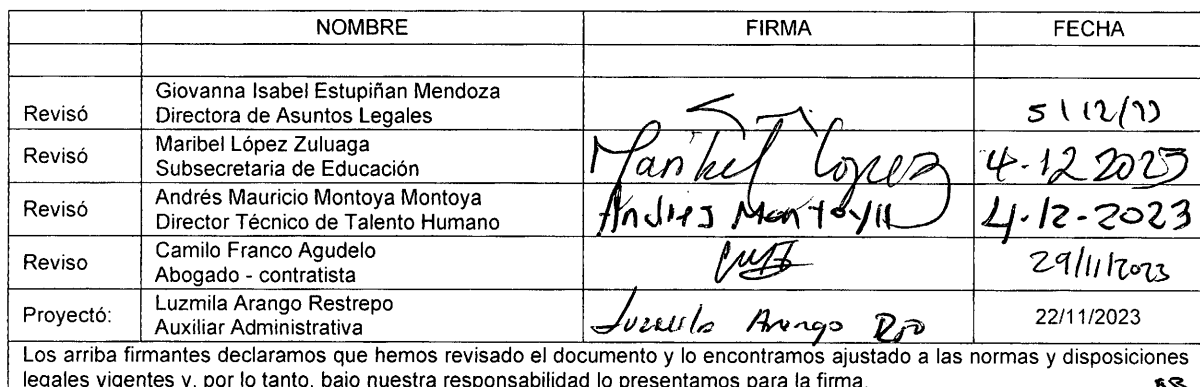 NOMBRE FIRMA FECHA
Giovanna Isabel Estupiñan Mendoza
Revisó Directora de Asuntos Legales 5/12/23
Revisó Maribel López Zuluaga
Subsecretaria de Educación Maribel Lopez 4-12 2023
Revisó Andrés Mauricio Montoya Montoya
Director Técnico de Talento Humano Andres Montoya 4-12-2023
Reviso Camilo Franco Agudelo
Abogado - contratista 29/11/2023
Proyectó: Luzmila Arango Restrepo
Auxiliar Administrativa Luzmila Arango 22/11/2023
Los arriba firmantes declaramos que hemos revisado el documento y lo encontramos ajustado a las normas y disposiciones
legales vigentes y, por lo tanto, bajo nuestra responsabilidad lo presentamos para la firma.